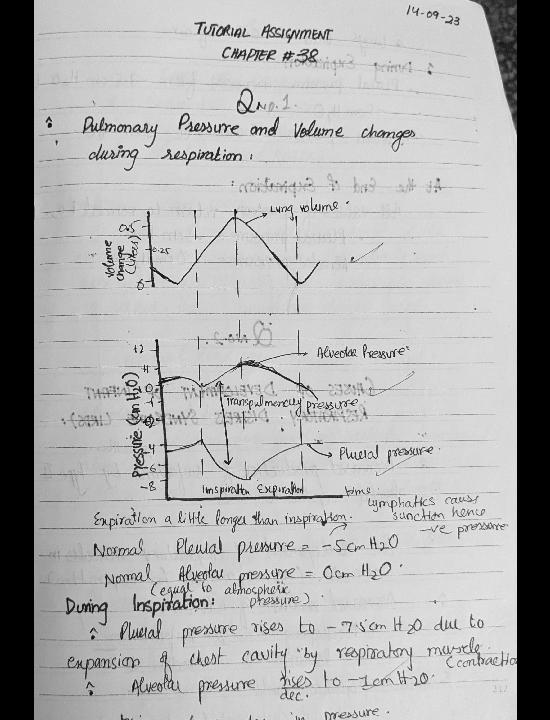 14-09-23
TUTORIAL ASSIGNMENT
CHAPTER #38
Q no.1.
Pulmonary Pressure and Volume changes
during respiration.
Lung volume.
0.5
0.25
0
Volume
change
(Liters)
+2
+1
0
-1
-2
-4
-6
-8
Pressure (cm H2O)
Alveolar Pressure
Transpulmonary pressure
Plueral pressure.
Inspiration Expiration
time
Lymphatics cause
sunction hence
-ve pressure
Expiration a little longer than inspiration.
Normal Pleural pressure = -5 cm H2O
Normal Alveolar pressure = 0 cm H2O.
(equal to atmospheric
pressure).
During Inspiration:
Plueral pressure rises to -7.5 cm H2O due to
expansion of chest cavity by respiratory muscle
(contraction
Alveolar pressure rises to -1 cm H2O.
dec.
pressure.